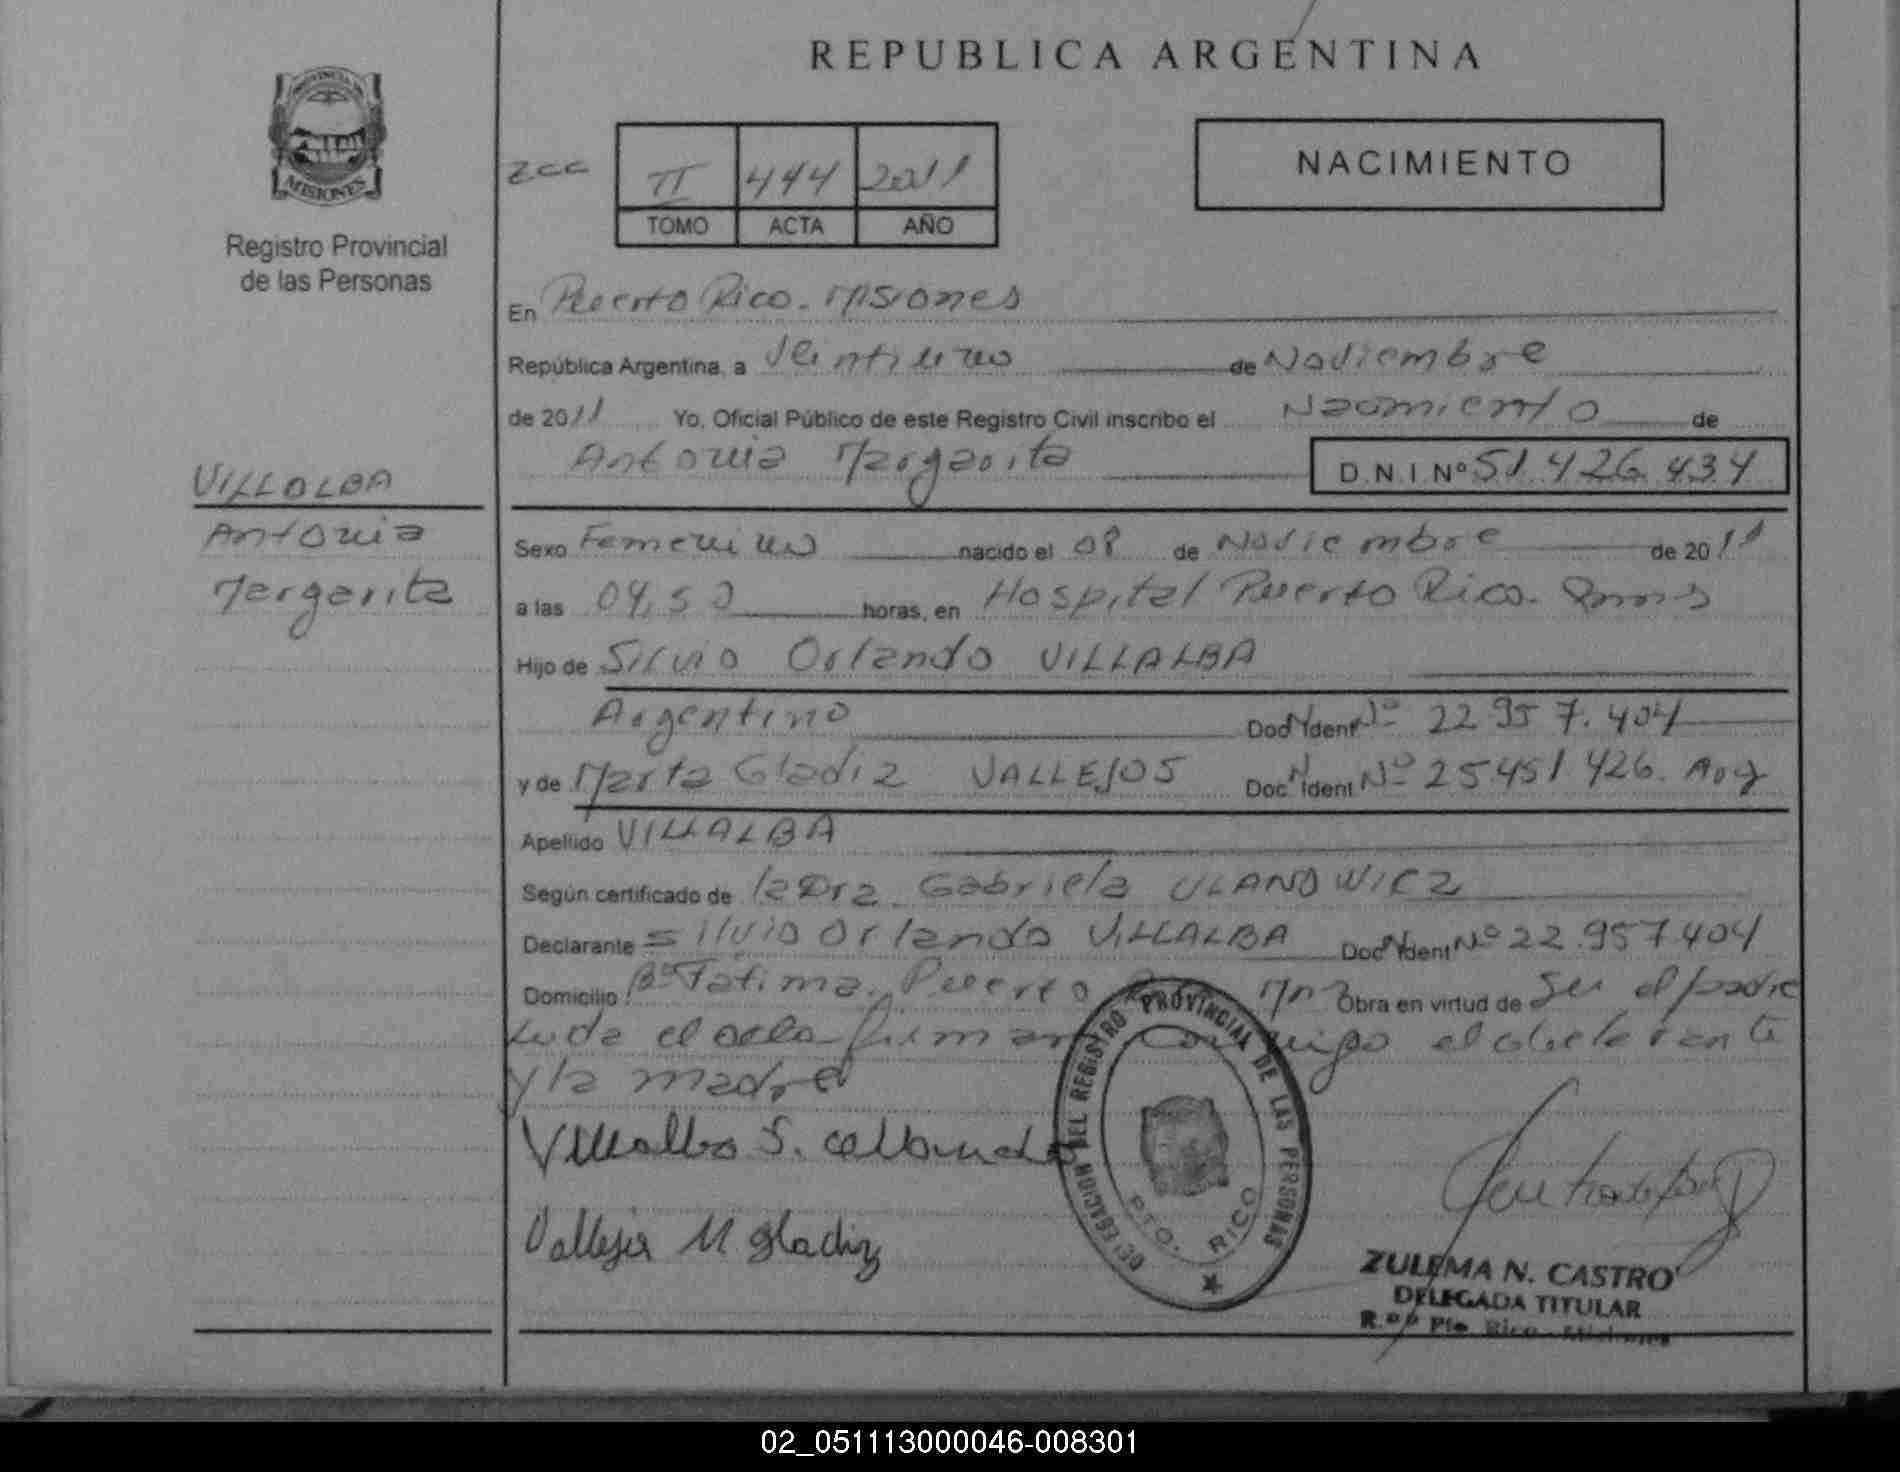 REPUBLICA ARGENTINA
PROVINCIA DE
MISIONES
Registro Provincial
de las Personas
zcc
II 444 2011
TOMO ACTA AÑO
NACIMIENTO
En Puerto Rico. Misiones
República Argentina, a Veintiuno de Noviembre
de 2011 Yo, Oficial Público de este Registro Civil inscribo el Nacimiento de
Antonia Margarita D.N.I.Nº 51.426.434
VILLALBA
Antonia
Margarita
Sexo Femenino nacido el 08 de Noviembre de 2011
a las 04,50 horas, en Hospital Puerto Rico.
Hijo de Silvio Orlando VILLALBA
Argentino Doc Ident Nº 22.957.404
y de Marta Gladiz VALLEJOS Doc N Ident Nº 25.451.426. Arg
Apellido VILLALBA
Según certificado de la Dra. Gabriela ULANOWICZ
Declarante Silvio Orlando VILLALBA Doc N Ident Nº 22.957.404
Domicilio Bº Fatima. Puerto Obra en virtud de Ser el padre
el acta firman conmigo el declarante
y la madre
Villalba S.
Vallejos M gladiz
DELEGACION DEL REGISTRO PROVINCIAL DE LAS PERSONAS
PTO. RICO
ZULEMA N. CASTRO
DELEGADA TITULAR
Pto Rico - Misiones
02_051113000046-008301